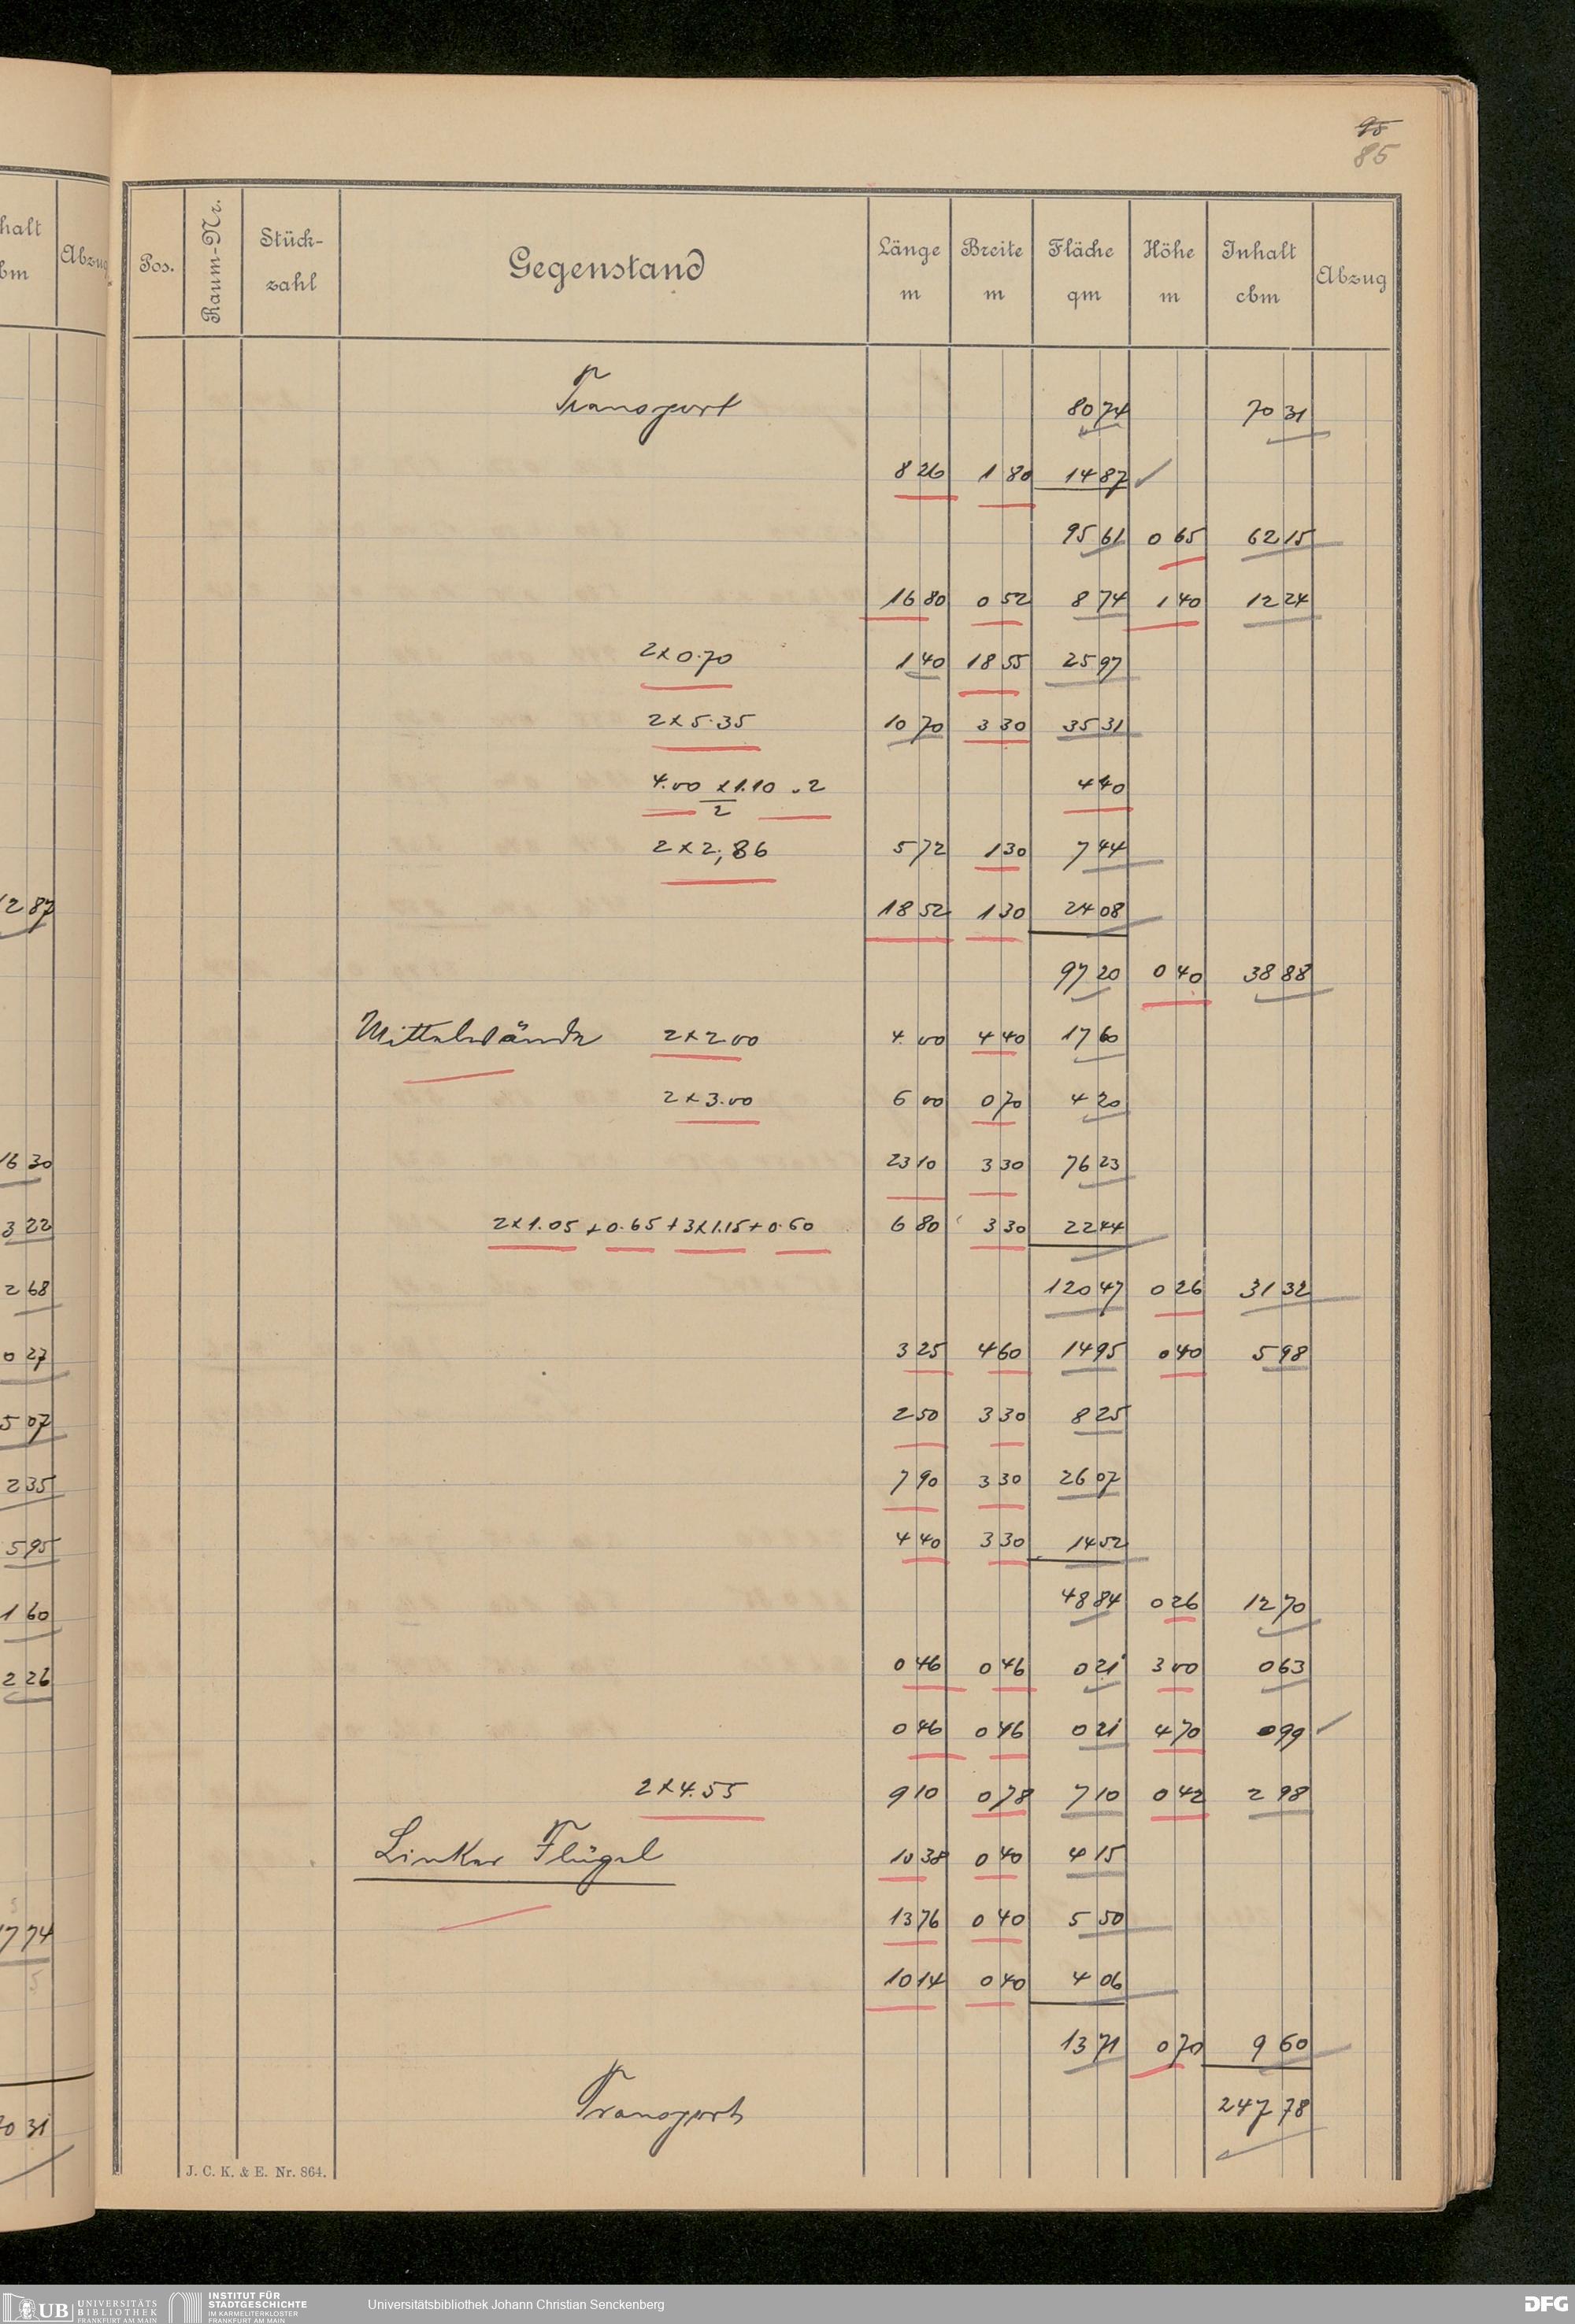 95
85
halt
bm
Abzug
Pos.
Raum-Nr.
Stück-
zahl
Gegenstand
Länge
m
Breite
m
Fläche
qm
Höhe
m
Inhalt
cbm
Abzug
Transport 80 74 70 31
8 26 1 80 14 87 ✓
95 61 0 65 62 15
16 80 0 52 8 74 1 40 12 24
2×0.70 1 40 18 55 25 97
2×5.35 10 70 3 30 35 31
4.00 × 1.10 . 2 4 40
2
2×2,86 5 72 1 30 7 44
18 52 1 30 24 08
97 20 0 40 38 88
Mittelwände 2×2.00 4.00 4 40 17 60
2×3.00 6 00 0 70 4 20
23 10 3 30 76 23
2×1.05 + 0.65 + 3×1.15 + 0.60 6 80 3 30 22 44
120 47 0 26 31 32
3 25 4 60 14 95 0 40 5 98
2 50 3 30 8 25
7 90 3 30 26 07
4 40 3 30 14 52
48 84 0 26 12 70
0 46 0 46 0 21 3 00 0 63
0 46 0 46 0 21 4 70 0 99 ✓
2×4.55 9 10 0 78 7 10 0 42 2 98
Linker Flügel 10 38 0 40 4 15
13 76 0 40 5 50
10 14 0 40 4 06
13 71 0 70 9 60
Transport 247 78
J. C. K. & E. Nr. 864.
12 87
16 30
3 22
2 68
0 27
5 07
2 35
5 95
1 60
2 26
17 74
5
70 31
UB UNIVERSITÄTS
BIBLIOTHEK
FRANKFURT AM MAIN
INSTITUT FÜR
STADTGESCHICHTE
IM KARMELITERKLOSTER
FRANKFURT AM MAIN
Universitätsbibliothek Johann Christian Senckenberg
DFG